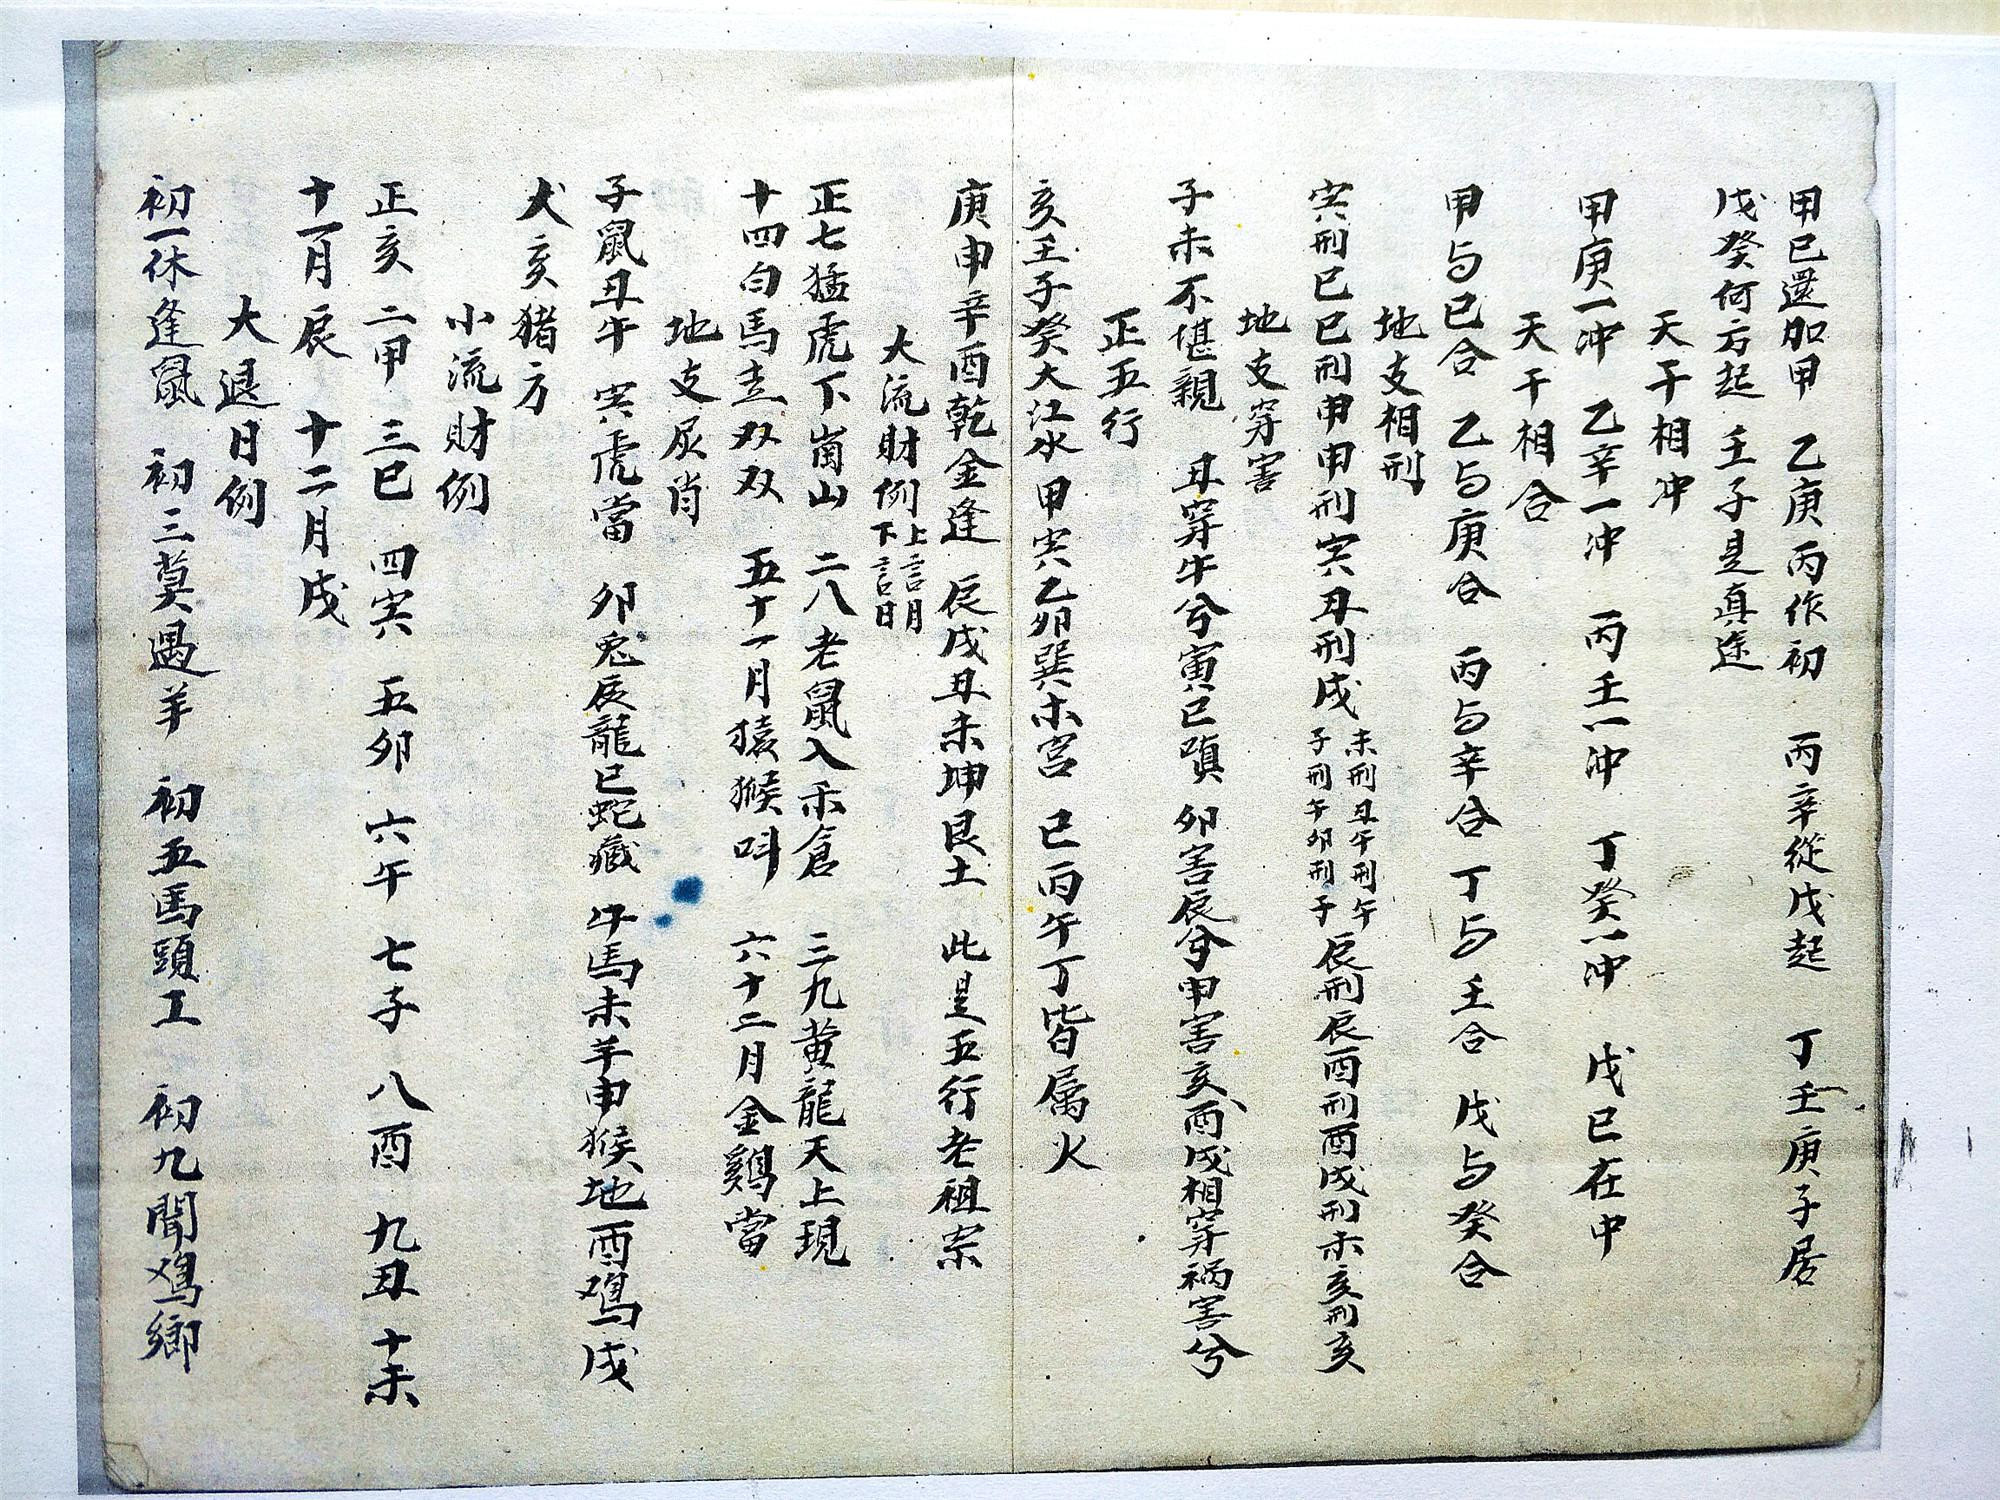 甲己還加甲 乙庚丙作初 丙辛從戊起 丁壬庚子居
戊癸何方起 壬子是真途
天干相冲
甲庚一冲 乙辛一冲 丙壬一冲 丁癸一冲 戊己在中
天干相合
甲与己合 乙与庚合 丙与辛合 丁与壬合 戊与癸合
地支相刑
寅刑巳巳刑申申刑寅丑刑戌 未刑丑午刑午 子刑午卯刑子 辰刑辰酉刑酉戌刑未亥刑亥
地支穿害
子未不堪親 丑穿午兮寅巳嗔 卯害辰兮申害亥酉戌相穿祸害兮
正五行
亥壬子癸大江水 甲寅乙卯巽木宫 巳丙午丁皆属火
庚申辛酉乾金逢 辰戌丑未坤艮土 此是五行老祖宗
大流財例 上言月 下言日
正七猛虎下崗山 二八老鼠入禾倉 三九黄龍天上現
十四白馬走双双 五十一月猿猴呌 六十二月金雞當
地支灰肖
子鼠丑牛 寅虎當 卯兎辰龍巳蛇藏 午馬未羊申猴地酉鳮戌
犬亥猪方
小流財例
正亥 二甲 三巳 四寅 五卯 六午 七子 八酉 九丑 十未
十一月辰 十二月戌
大退日例
初一休逢鼠 初三莫遇羊 初五馬頭工 初九聞鳮鄉